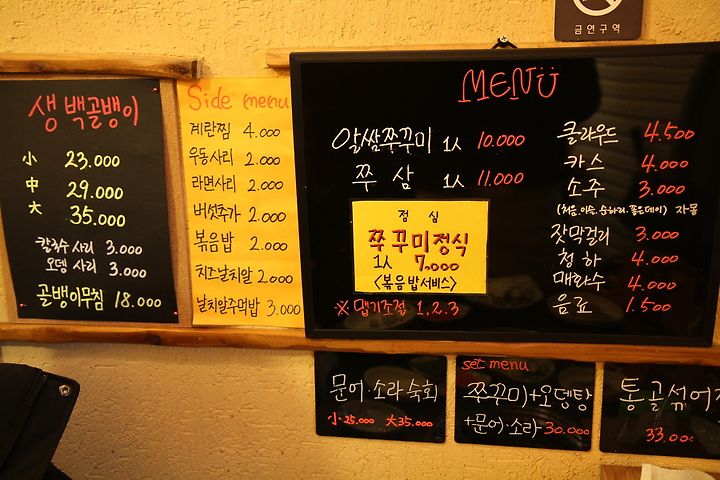 금연구역
생 백골뱅이
小 23.000
中 29.000
大 35.000
칼국수 사리 3.000
오뎅 사리 3.000
골뱅이무침 18.000
Side menu
계란찜 4.000
우동사리 2.000
라면사리 2.000
버섯추가 2.000
볶음밥 2.000
치즈날치알 2.000
날치알주먹밥 3.000
MENU
알쌈쭈꾸미 1人 10.000
쭈 삼 1人 11.000
점 심
쭈꾸미정식
1人 7.000
<볶음밥서비스>
※ 맵기조절 1.2.3
클라우드 4.500
카스 4.000
소주 3.000
(처음.이슬.순하리.좋은데이) 자몽
잣막걸리 3.000
청하 4.000
매화수 4.000
음료 1.500
문어·소라숙회
小 25.000 大 35.000
set menu
쭈꾸미+오뎅탕
+문어·소라 30.000
통골섞어
33.00